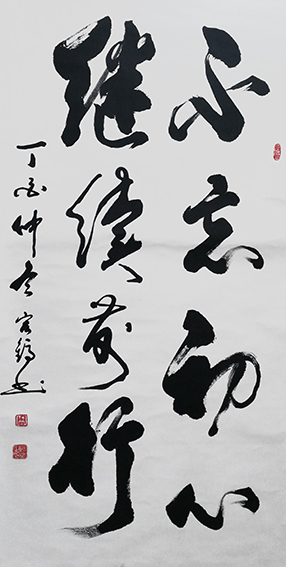 不忘初心
继续前行
丁酉仲冬 宏鸿书